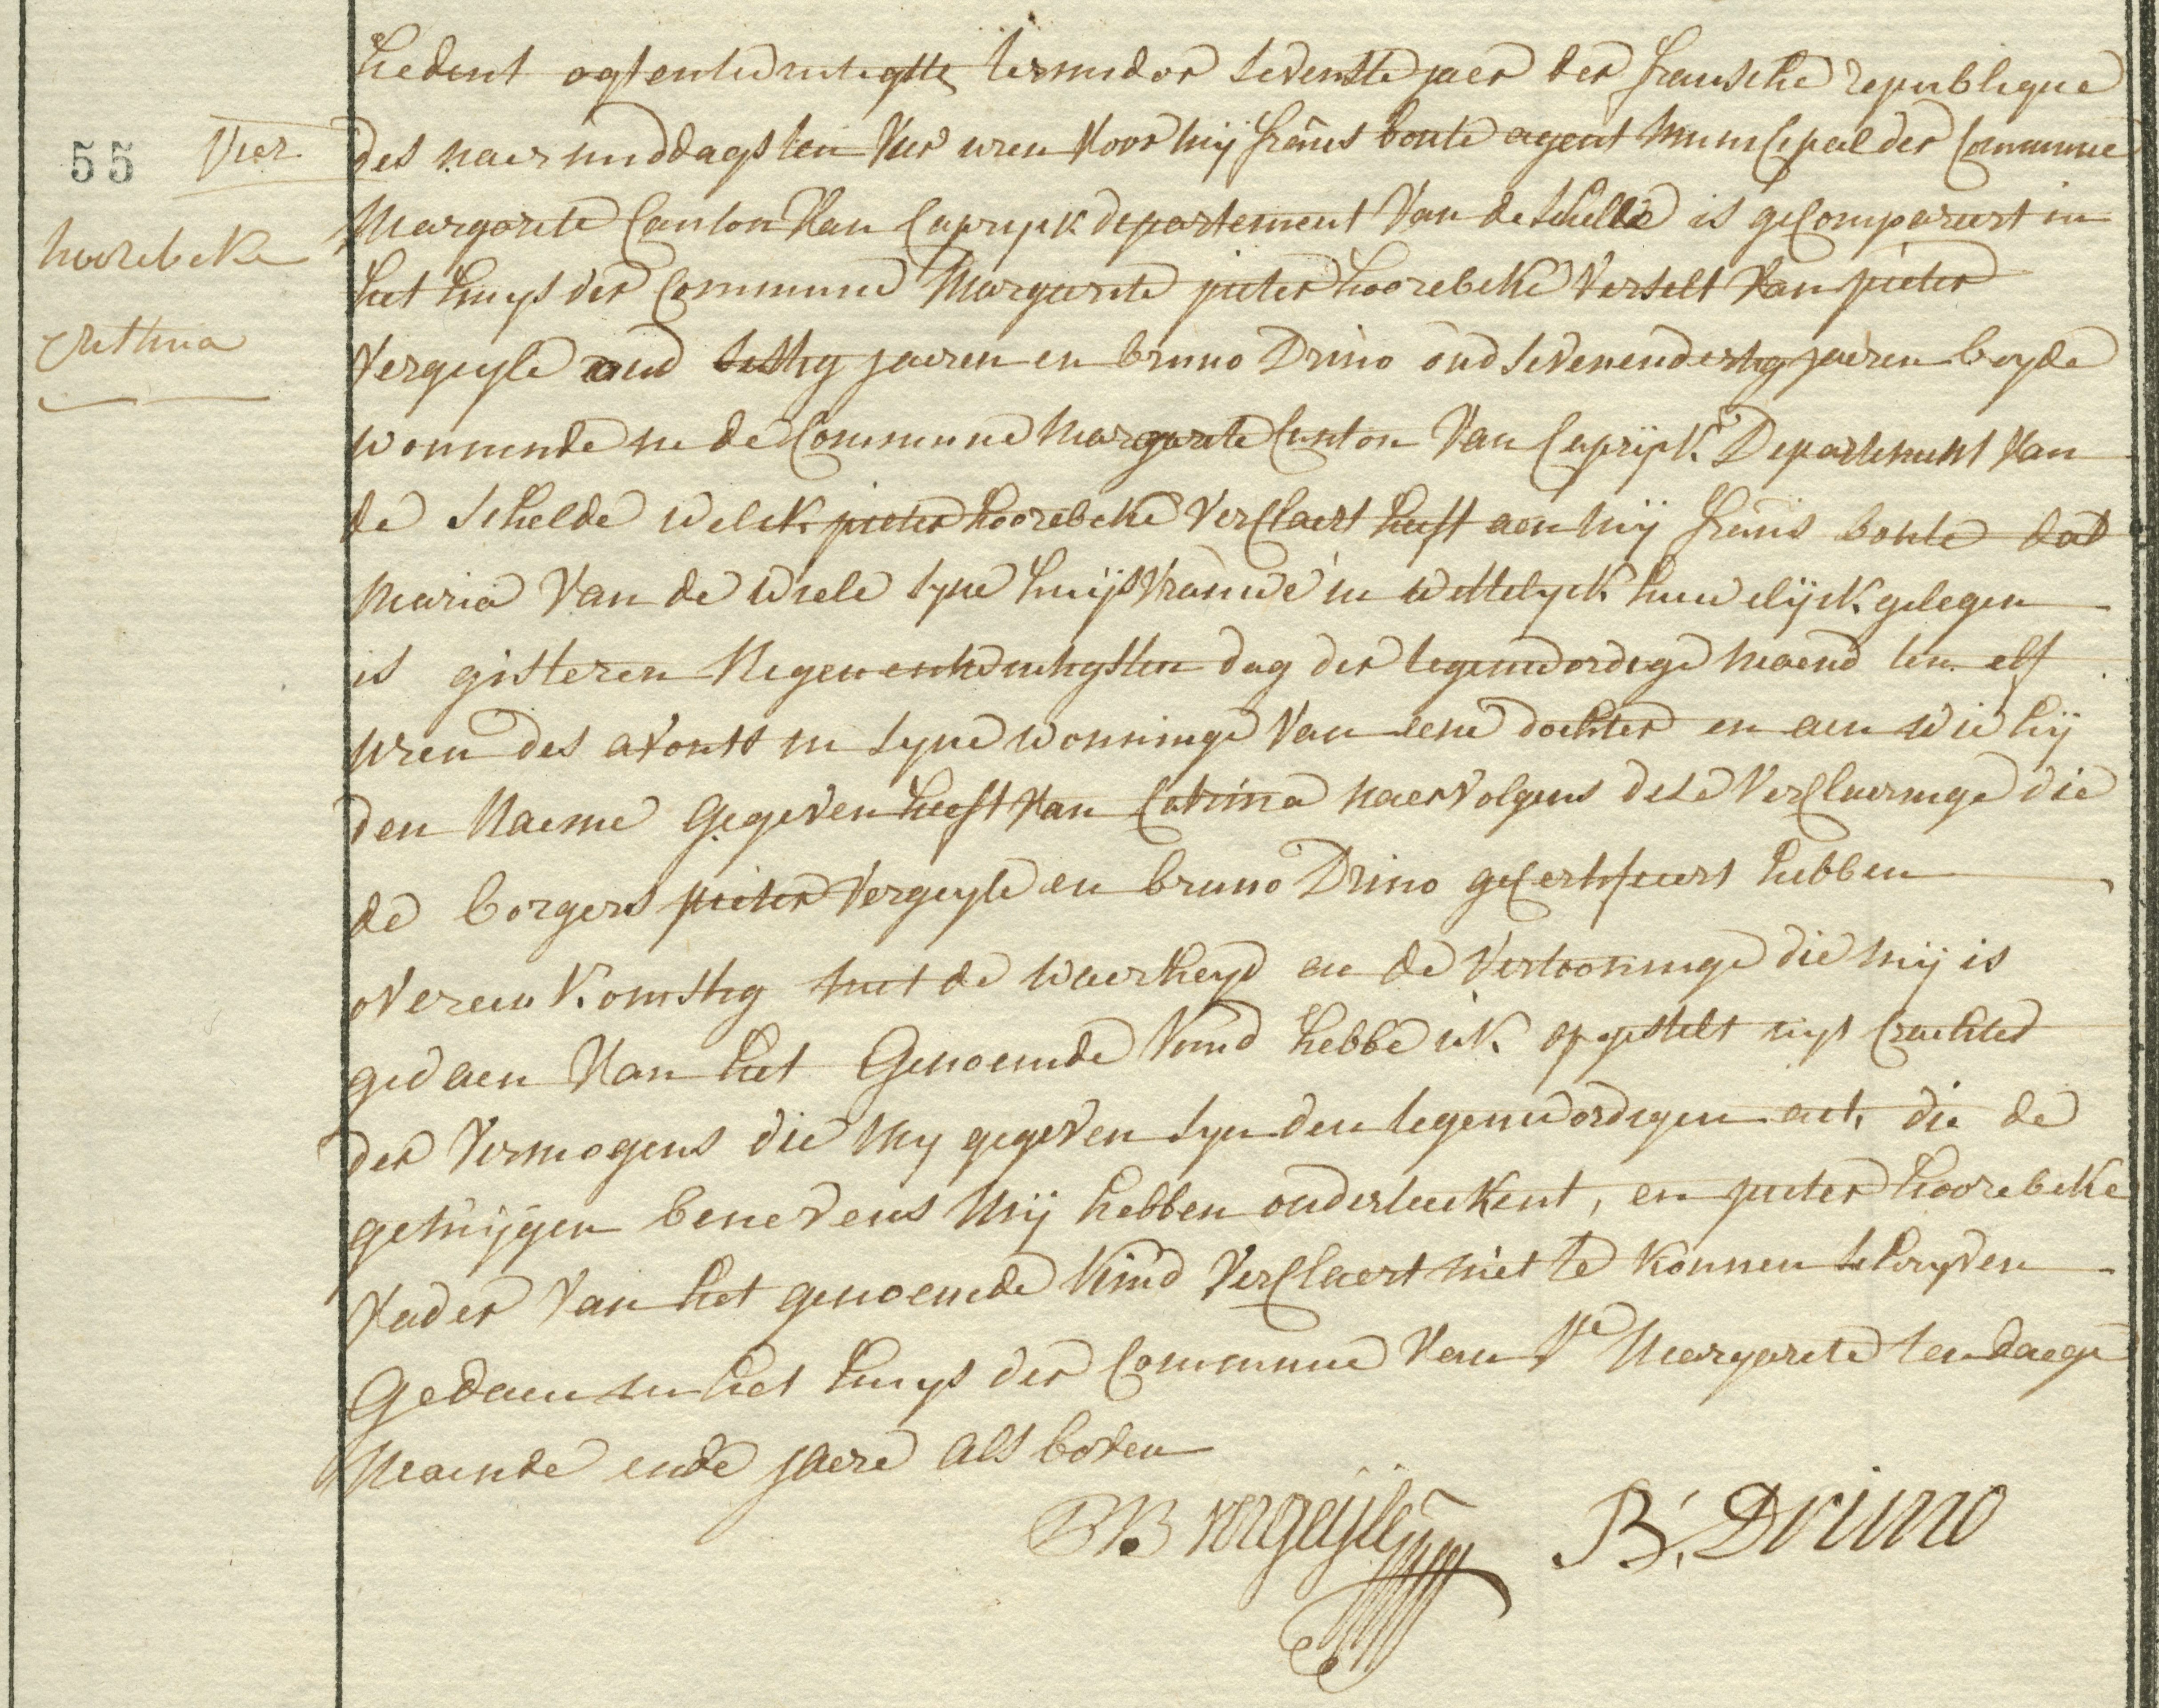 hedent agtentwintigste termidor sevenste jaer der fransche republique
55 Vier des naermiddags ten vier uren voor mij frans bonte agent municipael der Commune
Margarite Canton van Capryck departement van de schelde is gecompareert in
hoorebeke
het huys der Commune Margarite pieter hoorebeke verselt van pieter
Cathrina
Vergeyle oud sestig jaeren en bruno Drino oud sevenendertig jaeren beyde
woonende in de Commune Margarite Canton van Caprijck Departement van
de schelde welck pieter hoorebeke verclaert heeft aen mij frans bonte dat
Maria Van de Wiele syne huijsvrouwe in wettelyck huwelijck gelegen
is gisteren Negenentwintigsten dag der tegenwordige maend ten elf
uren des avonts in syne wooninge van eene dochter en aen wie hij
den Naeme gegeven heeft van Catrina naervolgens dese verclaeringe die
de borgers pieter Vergeyle en bruno Drino gecertifieert hebben
overeenkomstig met de waerheyd en de vertooninge die mij is
gedaen van het genoemde kind hebbe ick opgestelt uyt crachte
der vermogens die my gegeven syn den tegenwordigen act, die de
getuijgen benevens mij hebben onderteekent, en pieter hoorebeke
vader van het genoemde kind verclaert niet te konnen schryven
gedaen in het huys der Commune van Ste Margarete ten daege
Maende ende jaere als boven
PB vergeijle B. Drino